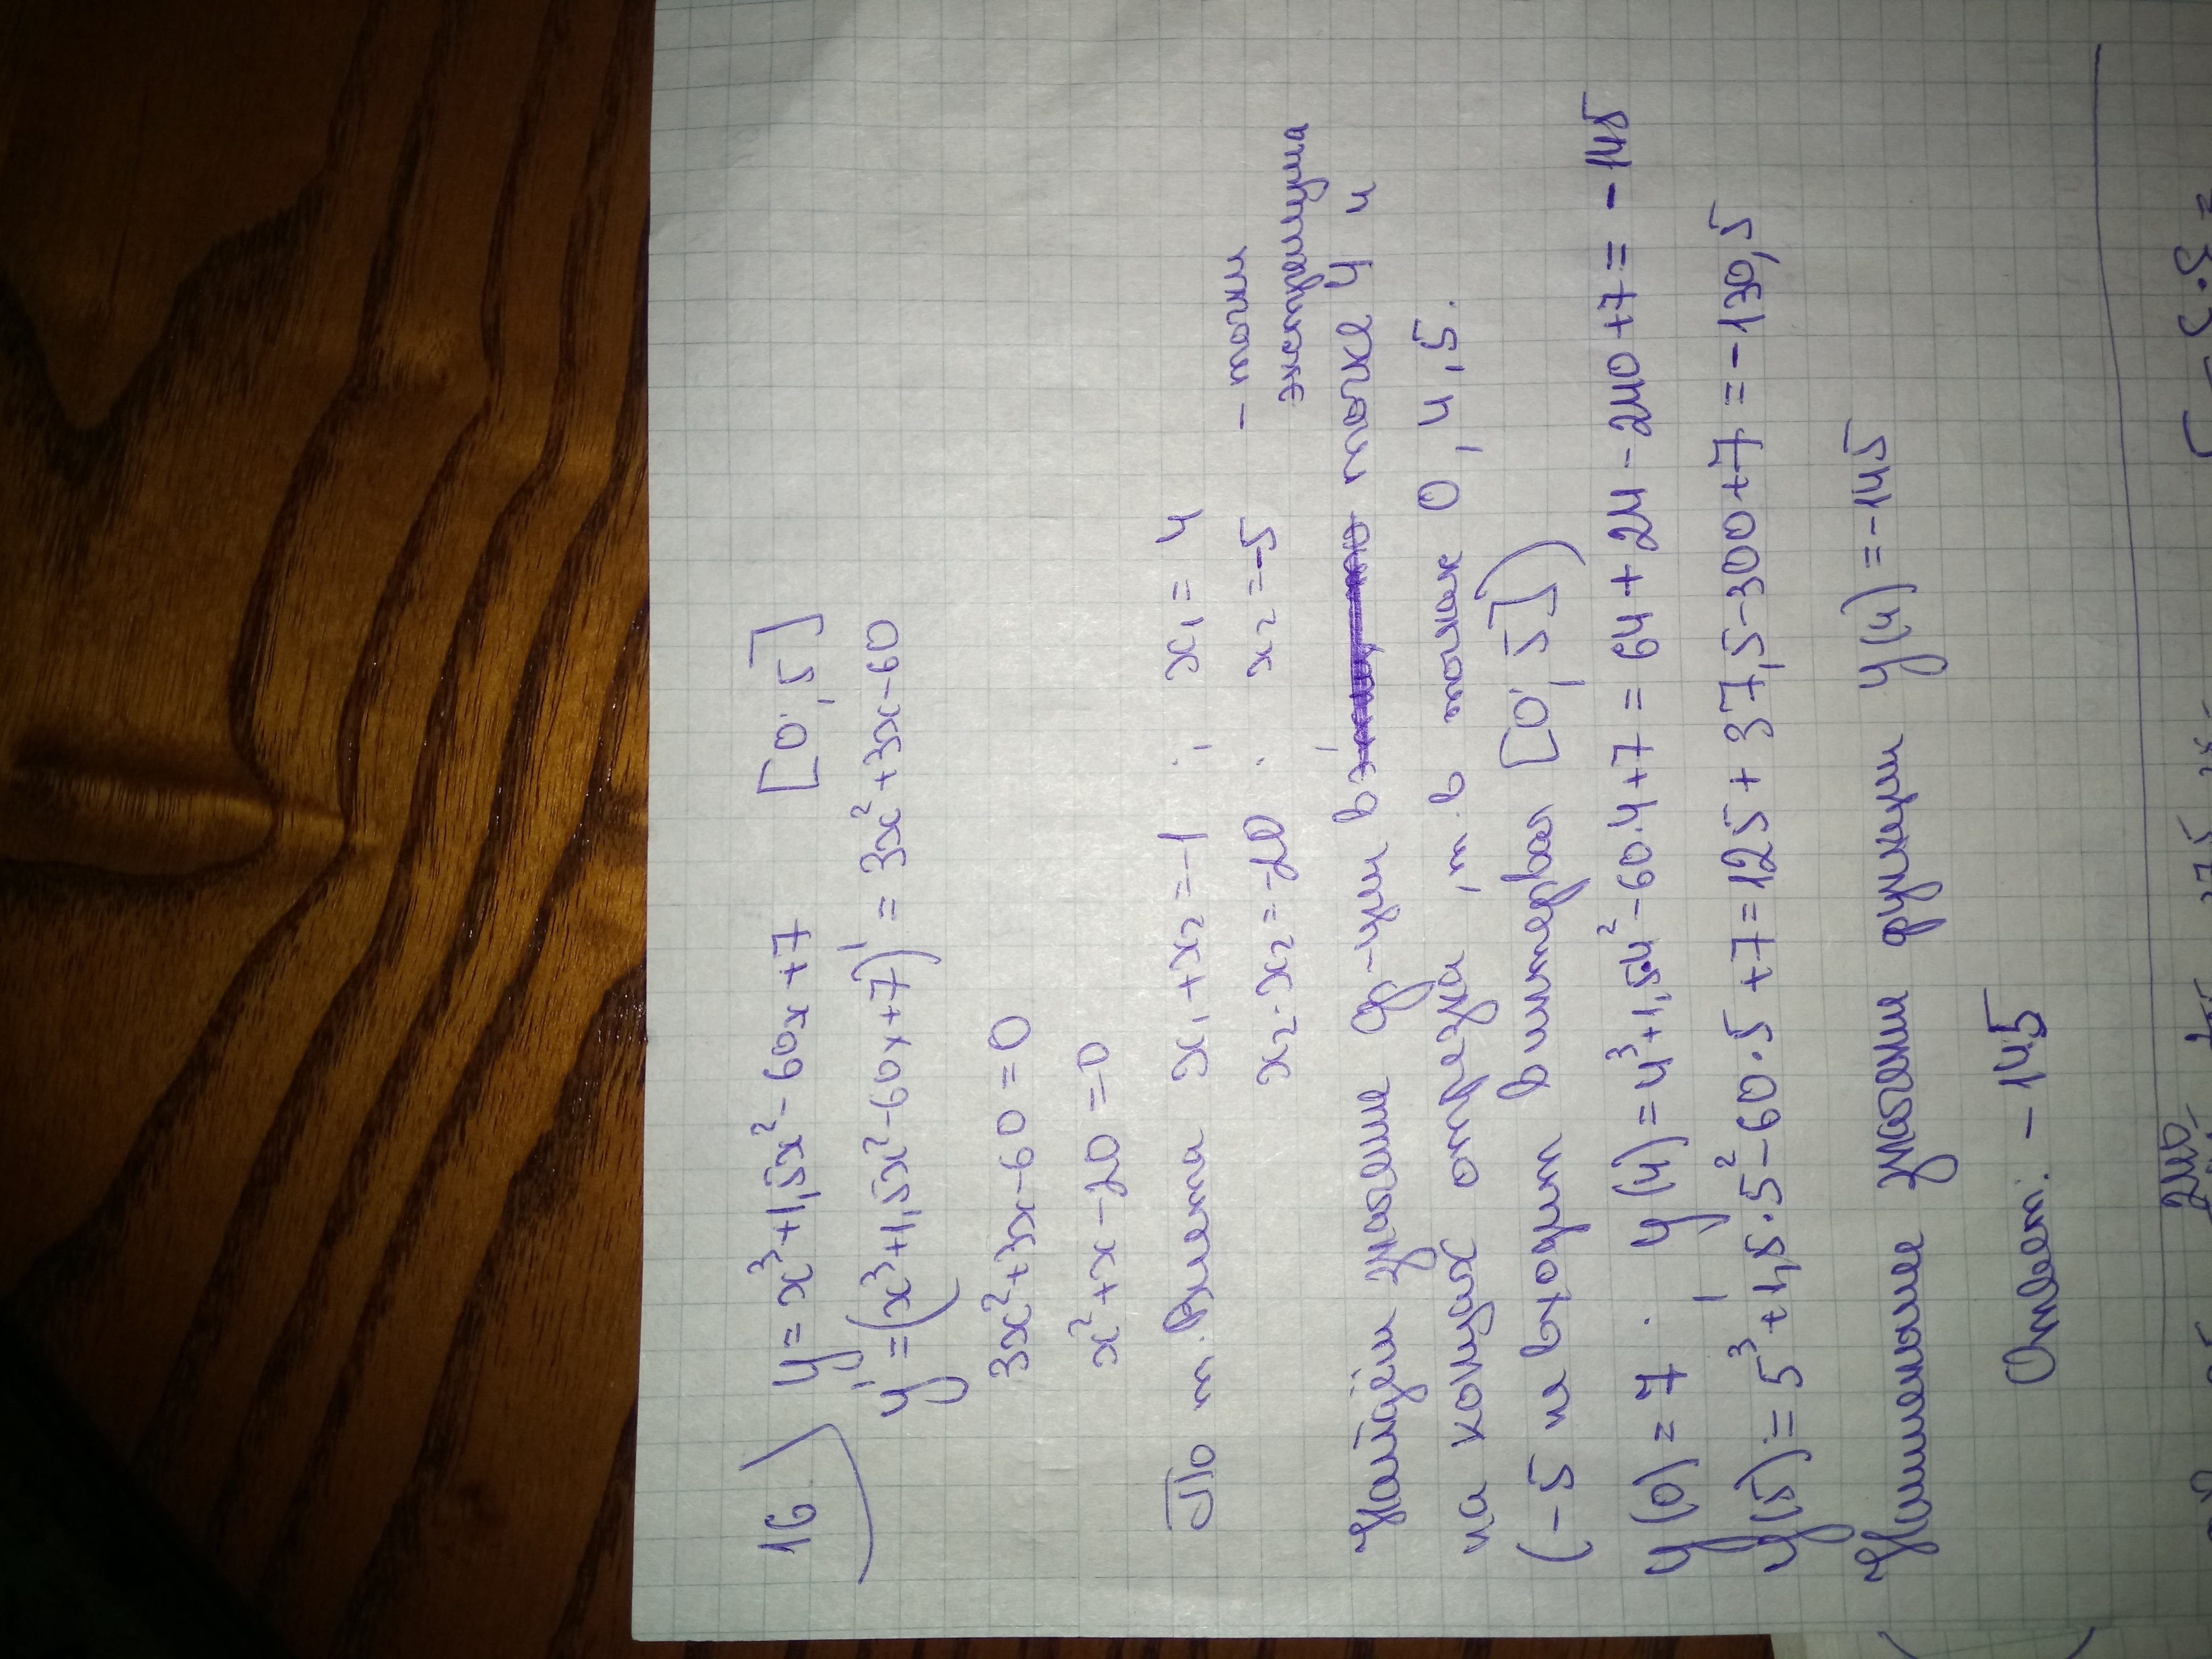 16) y = x³+1,5x²-60x+7 [0; 5]
y' = (x³+1,5x²-60x+7)' = 3x²+3x-60
3x²+3x-60=0
x²+x-20=0
По т. Виета x₁+x₂=-1 ; x₁=4
x₂·x₂=-20 ; x₂=-5 - точки
экстремума
Найдём значение ф-ции в точках 4 и
на концах отрезка, т.в точке 0, 4, 5.
(-5 не входит в интервал [0; 5])
y(0)=7; y(4)=4³+1,5·4²-60·4+7=64+24-240+7=-145
y(5)=5³+1,5·5²-60·5+7=125+37,5-300+7=-130,5
Наименьшее значение функции y(4)=-145
Ответ: -145